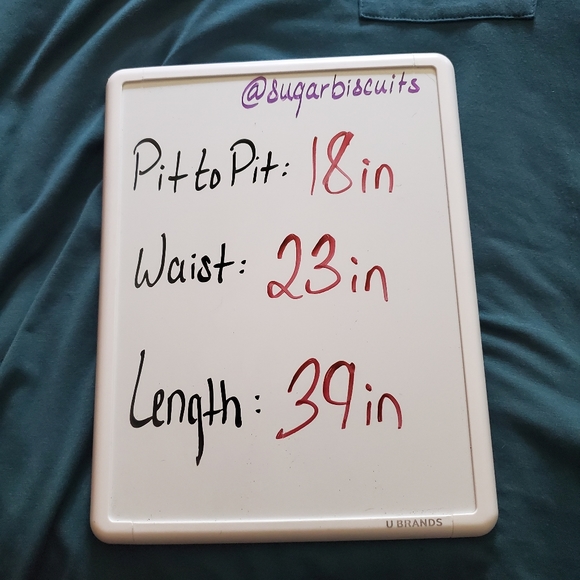 @sugarbiscuits
Pit to Pit: 18in
Waist: 23in
Length: 39in
U BRANDS